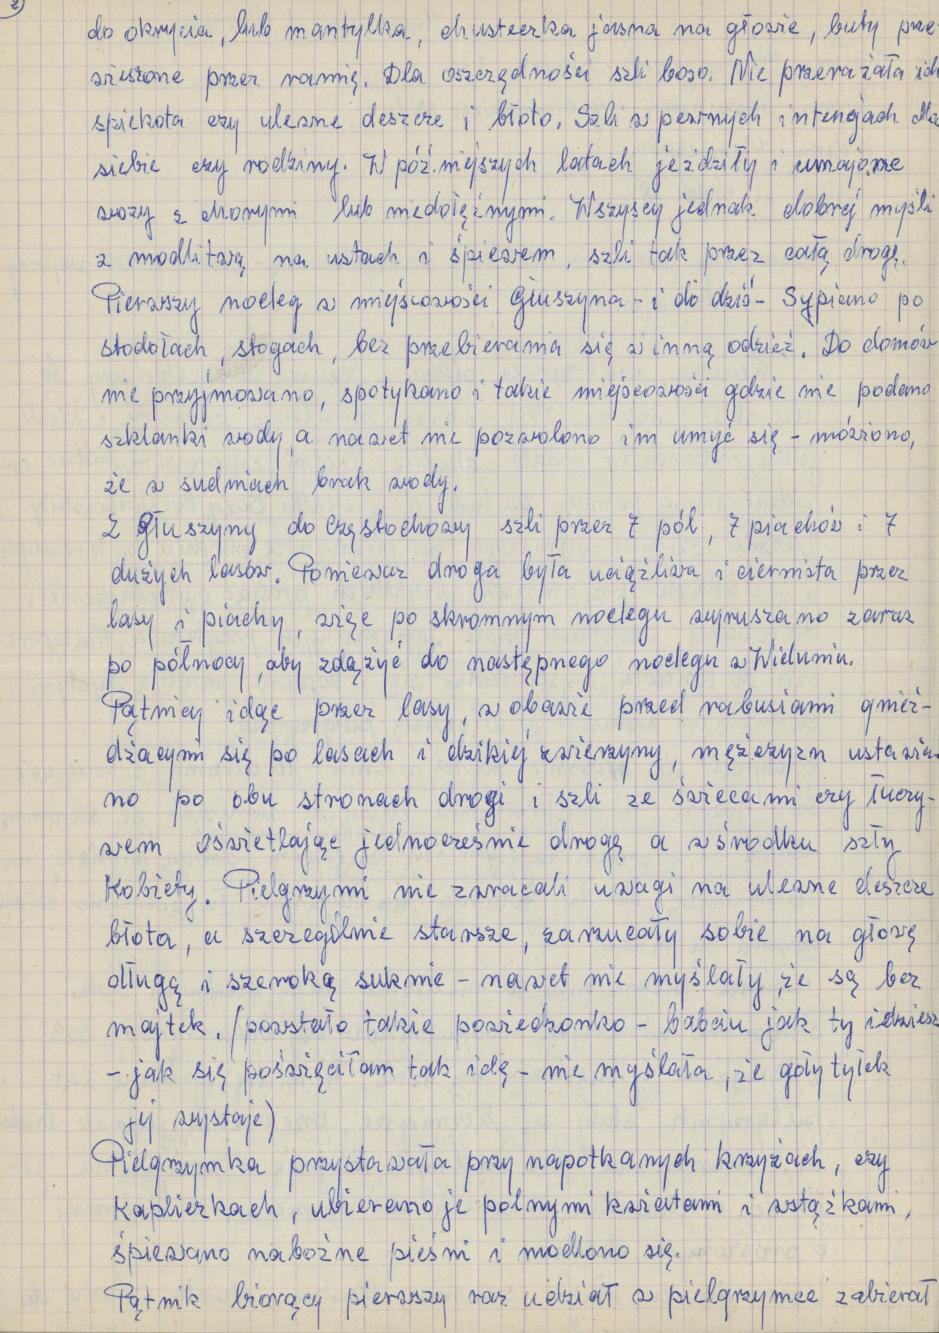 2)
do okrycia, lub mantylka, chusteczka jasna na głowie, buty prze
wieszone przez ramię. Dla oszczędności szli boso. Nie przerażała ich
spiekota czy ulewne deszcze i błoto. Szli w pewnych intencjach dla
siebie czy rodziny. W późniejszych latach jeździły i umajone
wozy z chorymi lub niedołężnymi. Wszyscy jednak dobrej myśli
z modlitwą na ustach i śpiewem, szli tak przez całą drogę.
Pierwszy nocleg w miejscowości Głuszyna - i do dziś - Sypiano po
stodołach, stogach, bez przebierania się w inną odzież. Do domów
nie przyjmowano, spotykano i takie miejscowości gdzie nie podano
szklanki wody, a nawet nie pozwolono im umyć się - mówiono,
że w sudniach brak wody.
Z Głuszyny do Częstochowy szli przez 7 pól, 7 piachów i 7
dużych lasów. Ponieważ droga była uciążliwa i ciernista przez
lasy i piachy, więc po skromnym noclegu wyruszano zaraz
po północy, aby zdążyć do następnego noclegu w Wieluniu.
Pątnicy idąc przez lasy, w obawie przed rabusiami gnież-
dżącymi się po lasach i dzikiej zwierzyny, mężczyzn ustawia
no po obu stronach drogi i szli ze świecami czy łuczy-
wem oświetlając jednocześnie drogę a w środku szły
Kobiety. Pielgrzymi nie zwracali uwagi na ulewne deszcze
błota, a szczególnie starsze, zarzucały sobie na głowę
długą i szeroką suknie - nawet nie myślały, że są bez
majtek. (powstało takie powiedzonko - babciu jak ty idziesz
- jak się poświęciłam tak idę - nie myślała, że goły tyłek
jej wystaje)
Pielgrzymka przystawała przy napotkanych krzyżach, czy
Kapliczkach, ubierano je polnymi kwiatami i wstążkami,
śpiewano nabożne pieśni i modlono się.
Pątnik biorący pierwszy raz udział w pielgrzymce zabierał